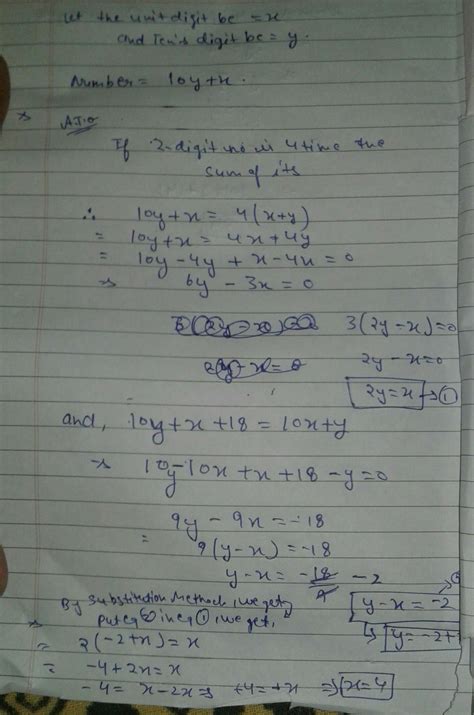 Let the unit digit be = x
and Ten's digit be = y.
Number = 10y+x.
A.T.Q
If 2-digit no is 4 time the
sum of its
∴ 10y+x = 4(x+y)
= 10y+x = 4x+4y
= 10y-4y + x-4x = 0
⇒ 6y - 3x = 0
3(2y-x)=0
2y-x=0
2y=x → ①
and, 10y+x+18 = 10x+y
⇒ 10y-10x+x+18-y=0
9y-9x=-18
= 9(y-x)=-18
y-x = -18 -2
y-x=-2
By Substitution Method, we get,
put eq ② in eq ①, we get,
y=-2+
= 2(-2+x)=x
= -4+2x=x
-4=x-2x ⇒ +4=+x ⇒ x=4